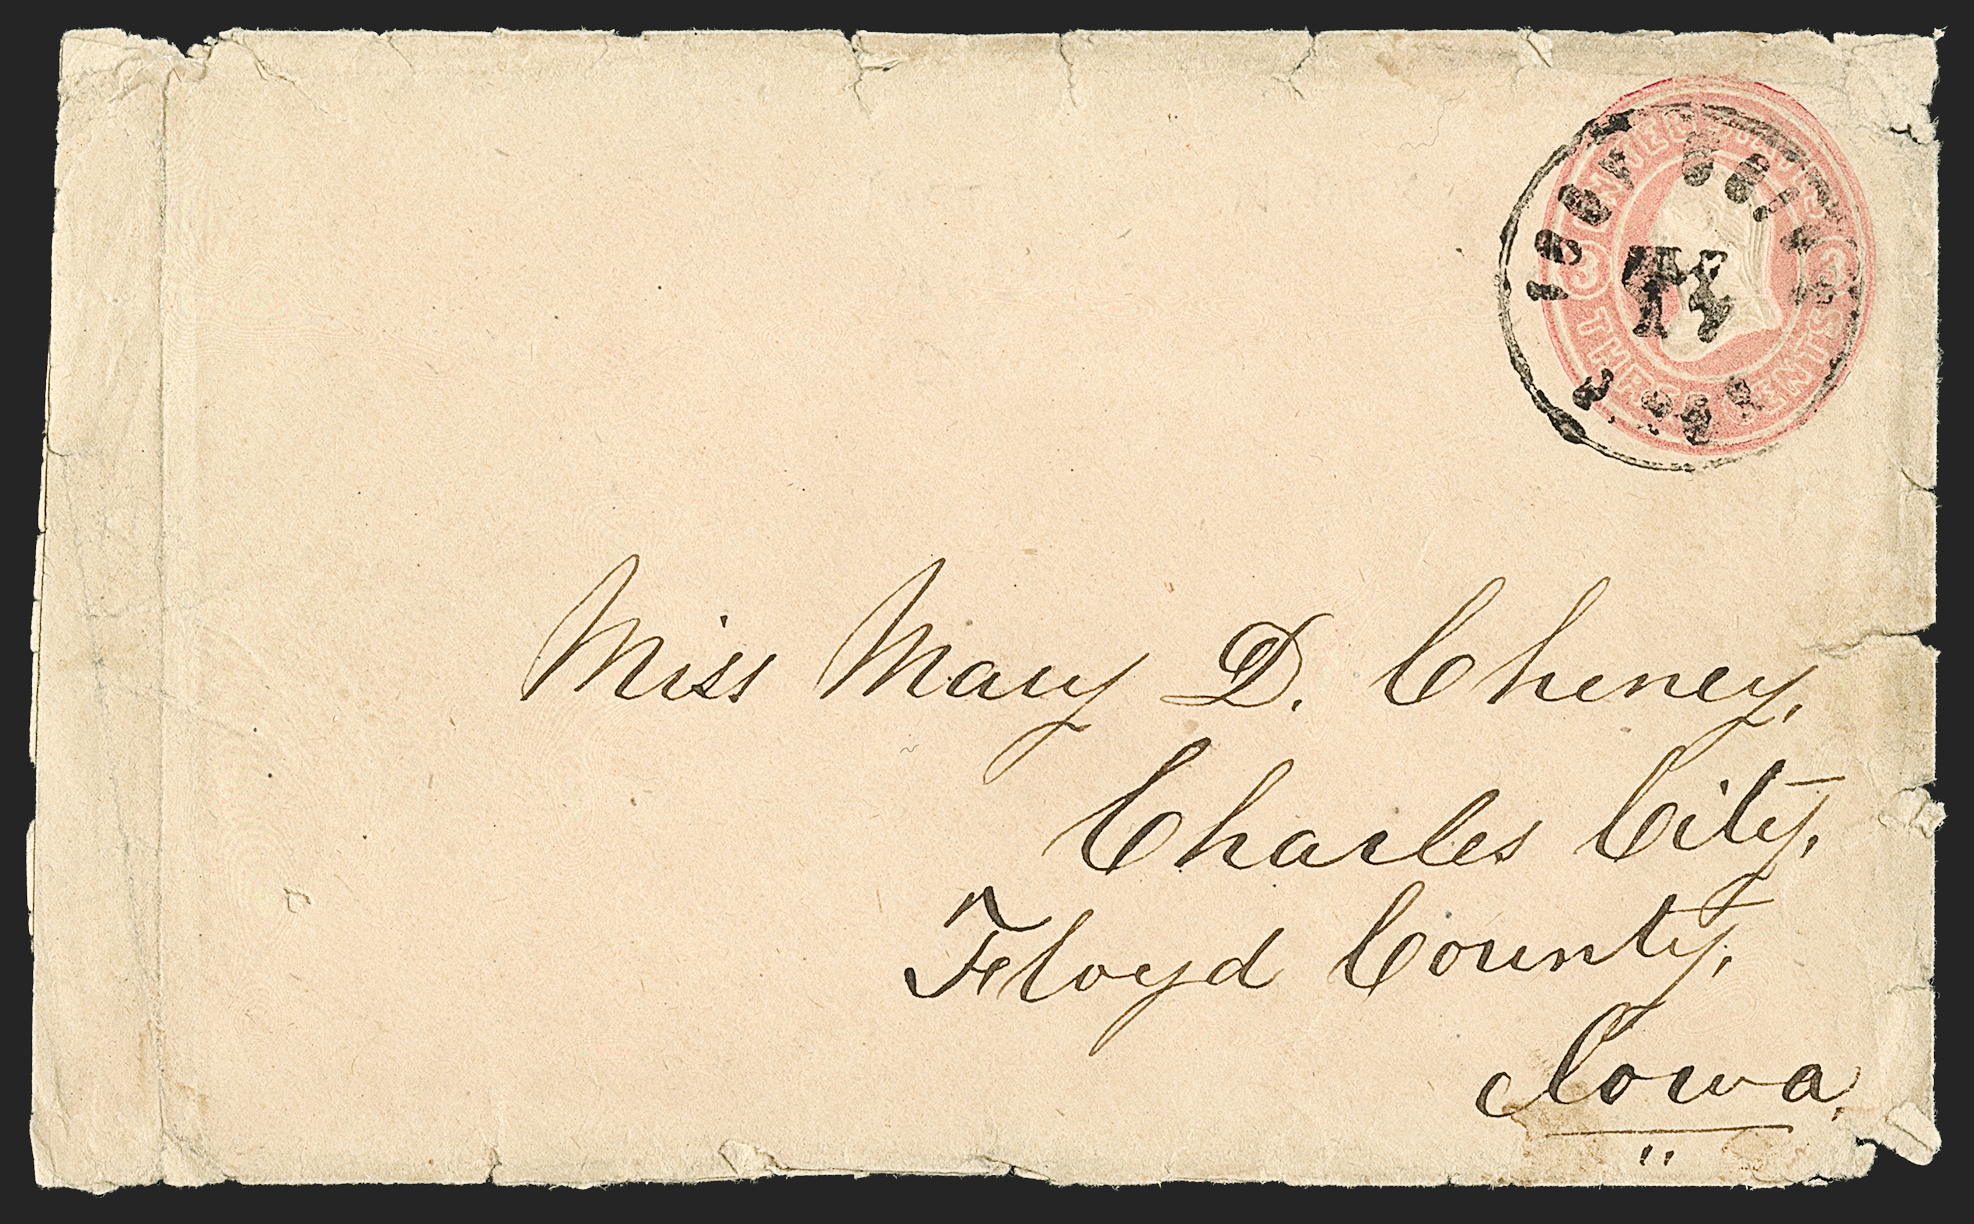 UNITED STATES
3 3
THREE CENTS
Miss Mary D. Cheney,
Charles City,
Floyd County,
Iowa.